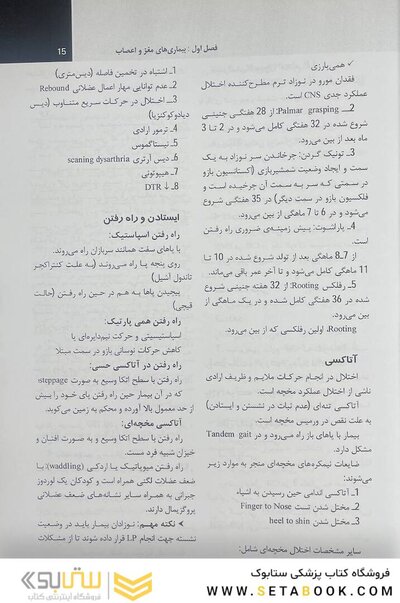 فصل اول: بیماری‌های مغز و اعصاب
15
✓ همی‌بارزی
فقدان مورو در نوزاد ترم مطرح‌کننده اختلال
عملکرد جدی CNS است.
2_ Palmar grasping: از 28 هفتگی جنینی
شروع شده در 32 هفتگی کامل می‌شود و در 2 تا 3
ماه بعد از بین می‌رود.
3_ تونیک گردن: چرخاندن سر نوزاد به یک
سمت و ایجاد وضعیت شمشیربازی (اکستانسیون بازو
در سمتی که سر به سمت آن چرخیده است و
فلکسیون بازو در سمت دیگر) در 35 هفتگی شروع
می‌شود و در 6 تا 7 ماهگی از بین می‌رود.
4_ پاراشوت: پیش زمینه‌ی ضروری راه رفتن
است.
از 7_8 ماهگی بعد از تولد شروع شده در 10 تا
11 ماهگی کامل می‌شود و تا آخر عمر باقی می‌ماند.
5_ رفلکس Rooting: از 32 هفته جنینی شروع
شده در 36 هفتگی کامل شده و در یک ماهگی از
بین می‌رود.
Rooting، اولین رفلکسی که از بین می‌رود.
آتاکسی
اختلال در انجام حرکات ملایم و ظریف ارادی
ناشی از اختلال عملکرد مخچه است.
آتاکسی تنه‌ای (عدم ثبات در نشستن و ایستادن)
به علت نقص در ورمیس مخچه است.
بیمار با پاهای باز راه می‌رود و در Tandem gait
مشکل دارد.
ضایعات نیمکره‌های مخچه‌ای منجر به موارد زیر
می‌شوند:
1_ آتاکسی اندامی حین رسیدن به اشیاء
2_ مختل شدن تست Finger to Nose
3_ مختل شدن heel to shin
سایر مشخصات اختلال مخچه‌ای شامل:
1_ اشتباه در تخمین فاصله (دیس‌متری)
2_ عدم توانایی مهار اعمال عضلانی Rebound
3_ اختلال در حرکات سریع متناوب (دیس
دیادوکوکنزیا)
4_ ترمور ارادی
5_ نیستاگموس
6_ دیس آرتری scaning dysarthria
7_ هیپوتونی
8_ ↓ DTR
ایستادن و راه رفتن
راه رفتن اسپاستیک:
با پاهای سفت همانند سربازان راه می‌روند.
روی پنجه پا راه می‌روند (به علت کنتراکچر
تاندول آشیل)
پیچیدن پاها به هم در حین راه رفتن (حالت
قیچی)
راه رفتن همی پارتیک:
اسپاستیسیتی و حرکت نیم‌دایره‌ای پا
کاهش حرکات نوسانی بازو در سمت مبتلا
راه رفتن در آتاکسی حسی:
راه رفتن با سطح اتکا وسیع به صورت steppage
که در آن بیمار حین راه رفتن پای خود را بیش
از حد معمول بالا آورده و محکم به زمین می‌کوبد.
آتاکسی مخچه‌ای:
راه رفتن با سطح اتکا وسیع و به صورت افتان و
خیزان شبیه فرد مست.
راه رفتن میوپاتیک یا اردکی (waddling): با
ضعف عضلات لگنی همراه است و کودکان یک لوردوز
جبرانی به همراه سایر نشانه‌های ضعف عضلانی
پروگزیمال دارند.
➤ نکته مهم: نوزادان بیمار باید در وضعیت
نشسته جهت انجام LP قرار داده شوند تا از مشکلات
ستابوک
فروشگاه اینترنتی کتاب
فروشگاه کتاب پزشکی ستابوک
WWW.SETABOOK.COM